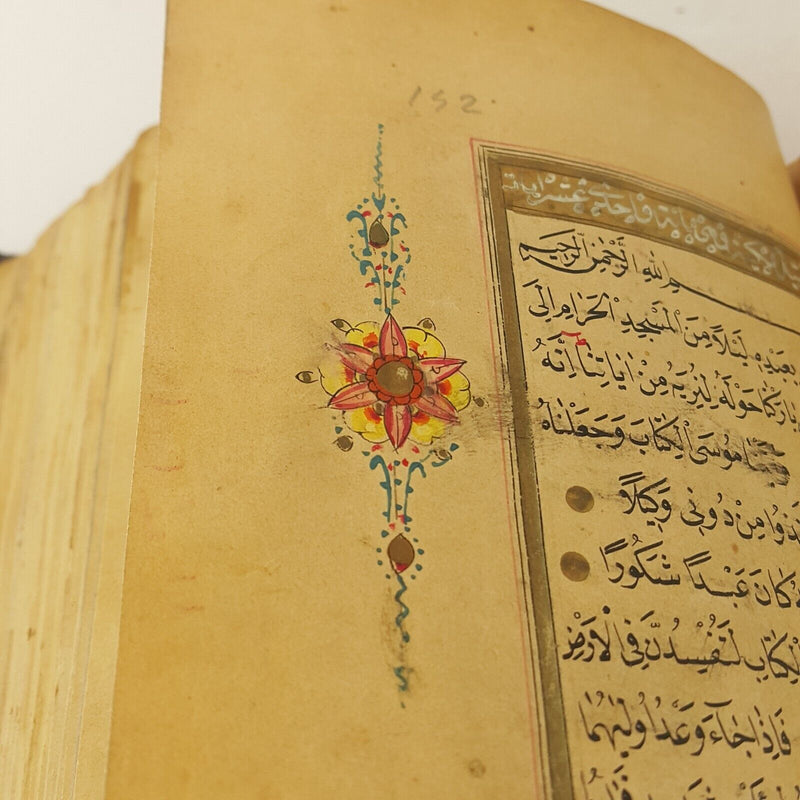 152
بِسْمِ اللهِ الرَّحْمٰنِ الرَّحِيمِ
بِعَبْدِهِ لَيْلًا مِنَ الْمَسْجِدِ الْحَرَامِ اِلَى
بَارَكْنَا حَوْلَهُ لِنُرِيَهُ مِنْ اٰيَاتِنَا اِنَّهُ
مُوسَى الْكِتَابَ وَجَعَلْنَاهُ
مِنْ دُونِى وَكِيلًا
كَانَ عَبْدًا شَكُورًا
الْكِتَابِ لَتُفْسِدُنَّ فِى الْاَرْضِ
فَاِذَا جَآءَ وَعْدُ اُولٰيهُمَا